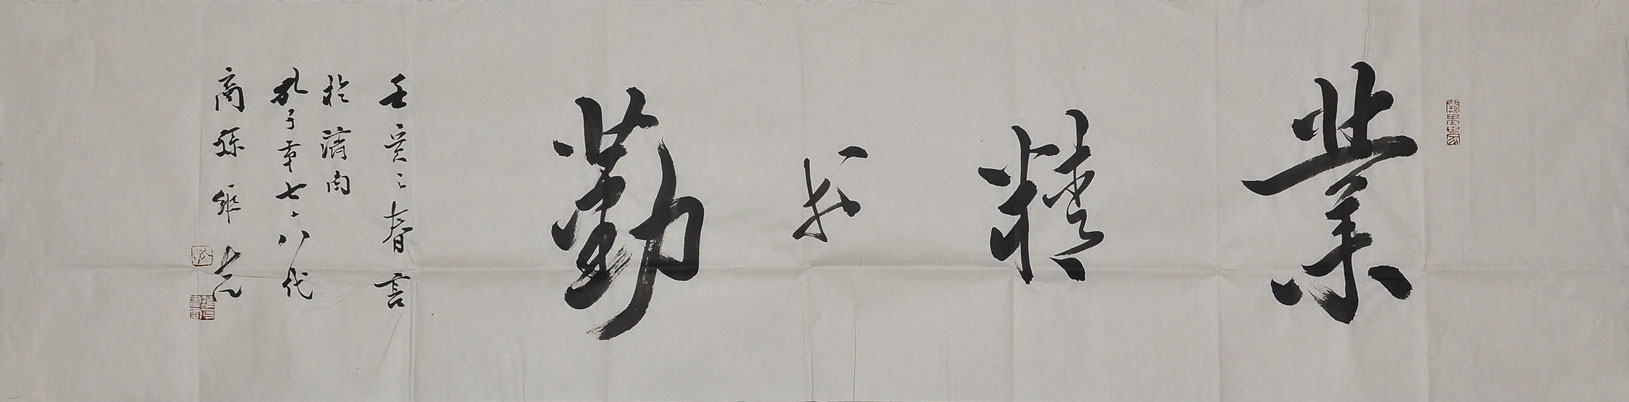 業精於勤
壬寅之春書
於濟南
孔子第七十八代
裔孫維